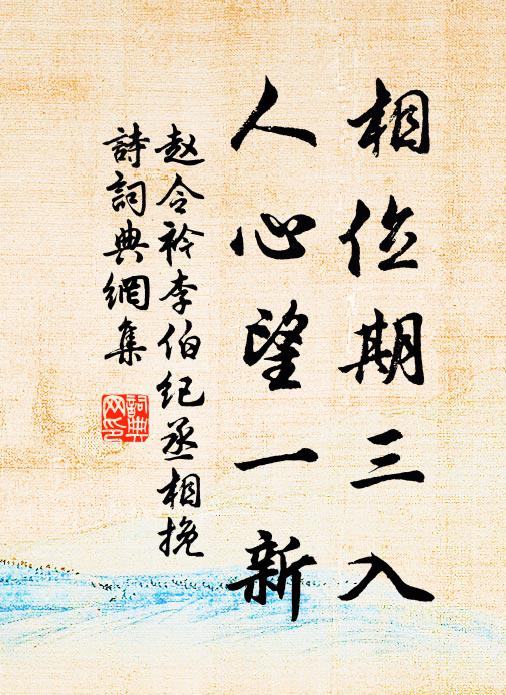 相位期三入
人心望一新
赵令衿李伯纪丞相挽
詩詞典網集
詞典
网印